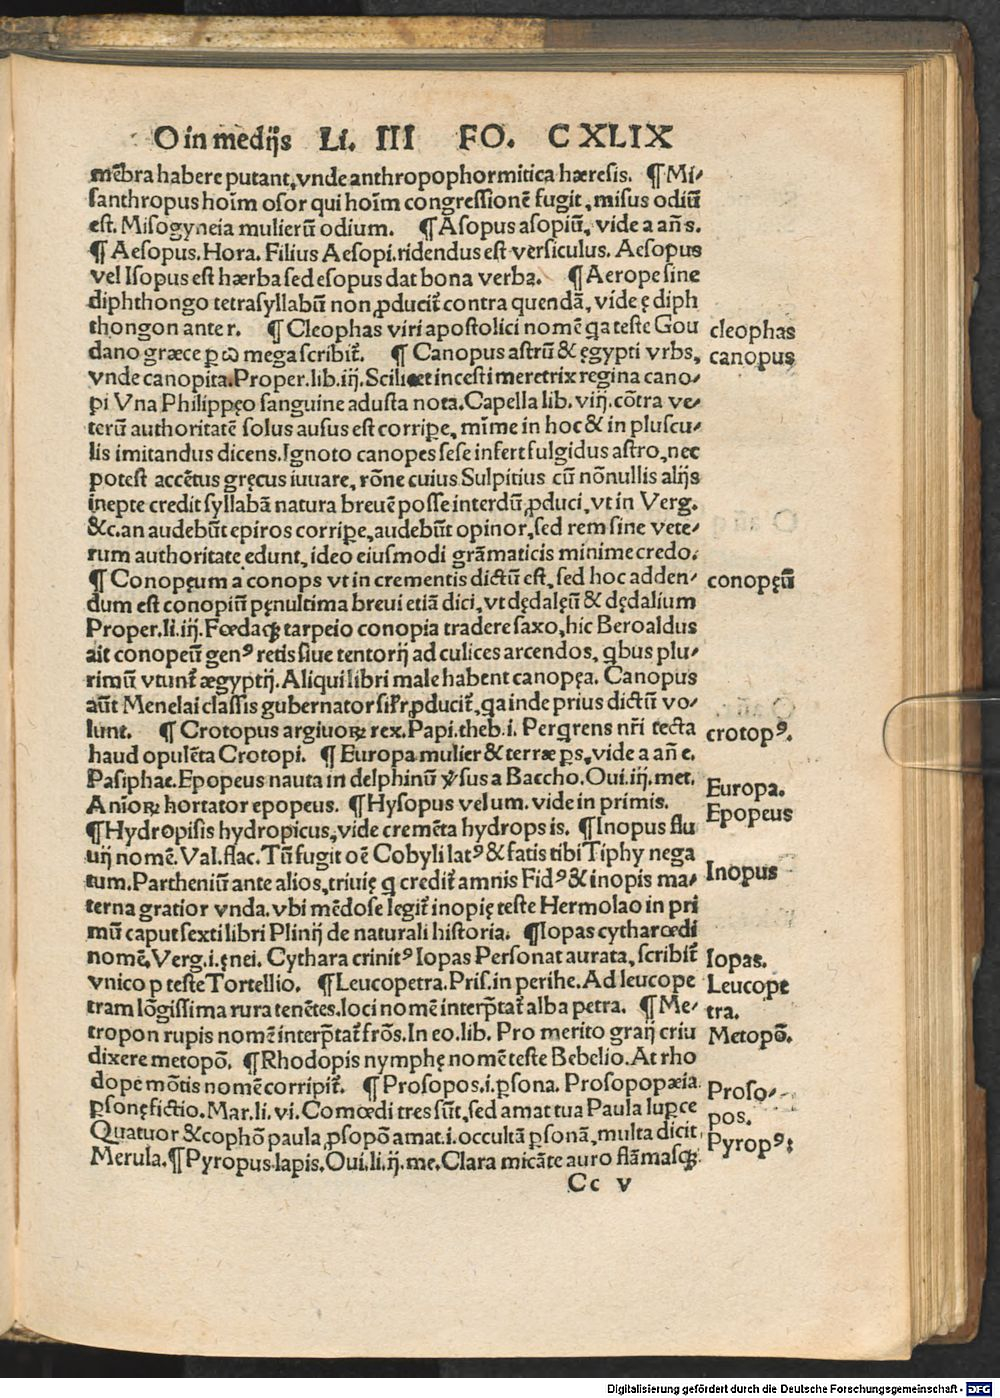 O in medijs Li. III FO. CXLIX
mẽbra habere putant, vnde anthropophormitica hæresis. ¶ Mi⸗
santhropus hoĩm osor qui hoĩm congressionẽ fugit, misus odiũ
est. Misogyneia mulierũ odium. ¶ Asopus asopiũ, vide a añ s.
¶ Aesopus. Hora. Filius Aesopi. ridendus est versiculus. Aesopus
vel Isopus est hærba sed esopus dat bona verba. ¶ Aerope sine
diphthongo tetrasyllabũ non ꝓducit᷑ contra quendã, vide ę diph
thongon ante r. ¶ Cleophas viri apostolici nomẽ qa teste Gou
cleophas
dano græce p ω mega scribit᷑. ¶ Canopus astrũ & ęgypti vrbs,
canopus
vnde canopita. Proper. lib. iij. Scilicet incesti meretrix regina cano⸗
pi Vna Philippęo sanguine adusta nota. Capella lib. viij. cõtra ve⸗
terũ authoritatẽ solus ausus est corripe, mĩme in hoc & in pluscu⸗
lis imitandus dicens. Ignoto canopes sese infert fulgidus astro, nec
potest accẽtus gręcus iuuare, rõne cuius Sulpitius cũ nõnullis alijs
inepte credit syllabã natura breuẽ posse interdũ ꝓduci, vt in Verg.
&c. an audebũt epiros corripe, audebũt opinor, sed rem sine vete⸗
rum authoritate edunt, ideo eiusmodi grãmaticis minime credo.
¶ Conopęum a conops vt in crementis dictũ est, sed hoc adden⸗
conopęũ
dum est conopiũ pęnultima breui etiã dici, vt dędalęũ & dędalium
Proper. li. iij. Fœdaqꝫ tarpeio conopia tradere saxo, hic Beroaldus
ait conopeũ genꝰ retis siue tentorij ad culices arcendos, qbus plu⸗
rimũ vtunt᷑ ægyptij. Aliqui libri male habent canopęa. Canopus
aũt Menelai classis gubernator sil’r ꝓducit᷑, qa inde prius dictũ vo⸗
lunt. ¶ Crotopus argiuoꝝ rex. Papi. theb. i. Pergrens nr̃i tecta
crotopꝰ.
haud opulẽta Crotopi. ¶ Europa mulier & terræ ꝑs, vide a añ e.
Pasiphae. Epopeus nauta in delphinũ ꝟsus a Baccho. Oui. iij. met.
Europa.
Anĩoꝝ hortator epopeus. ¶ Hysopus vel um. vide in primis.
Epopeus
¶ Hydropisis hydropicus, vide cremẽta hydrops is. ¶ Inopus flu
uij nomẽ. Val. flac. Tũ fugit oẽ Cobyli latꝰ & fatis tibi Tiphy nega
tum. Partheniũ ante alios, triuię q credit᷑ amnis Fidꝰ & inopis ma⸗
Inopus
terna gratior vnda. vbi mẽdose legit᷑ inopię teste Hermolao in pri
mũ caput sexti libri Plinij de naturali historia. ¶ Iopas cytharœdi
nomẽ. Verg. i. ęnei. Cythara crinitꝰ Iopas Personat aurata, scribit᷑
Iopas.
vnico p teste Tortellio. ¶ Leucopetra. Pris. in perihe. Ad leucope
Leucope
tram lõgissima rura tenẽtes. loci nomẽ interp̃tat᷑ alba petra. ¶ Me⸗
tra.
tropon rupis nomẽ interp̃tat᷑ frõs. In eo. lib. Pro merito graij criu
Metopõ.
dixere metopõ. ¶ Rhodopis nymphę nomẽ teste Bebelio. At rho
dope mõtis nomẽ corripit᷑. ¶ Prosopos. i. ꝑsona. Prosopopæia
Proso⸗
ꝑsonę fictio. Mar. li. vi. Comœdi tres sũt, sed amat tua Paula luperce
pos.
Quatuor & cophõ paula ꝓsopõ amat. i. occultã ꝑsonã, multa dicit
Pyropꝰ:
Merula. ¶ Pyropus lapis. Oui. li. ij. me. Clara micãte auro flãmasqꝫ
Cc v
Digitalisierung gefördert durch die Deutsche Forschungsgemeinschaft - DFG